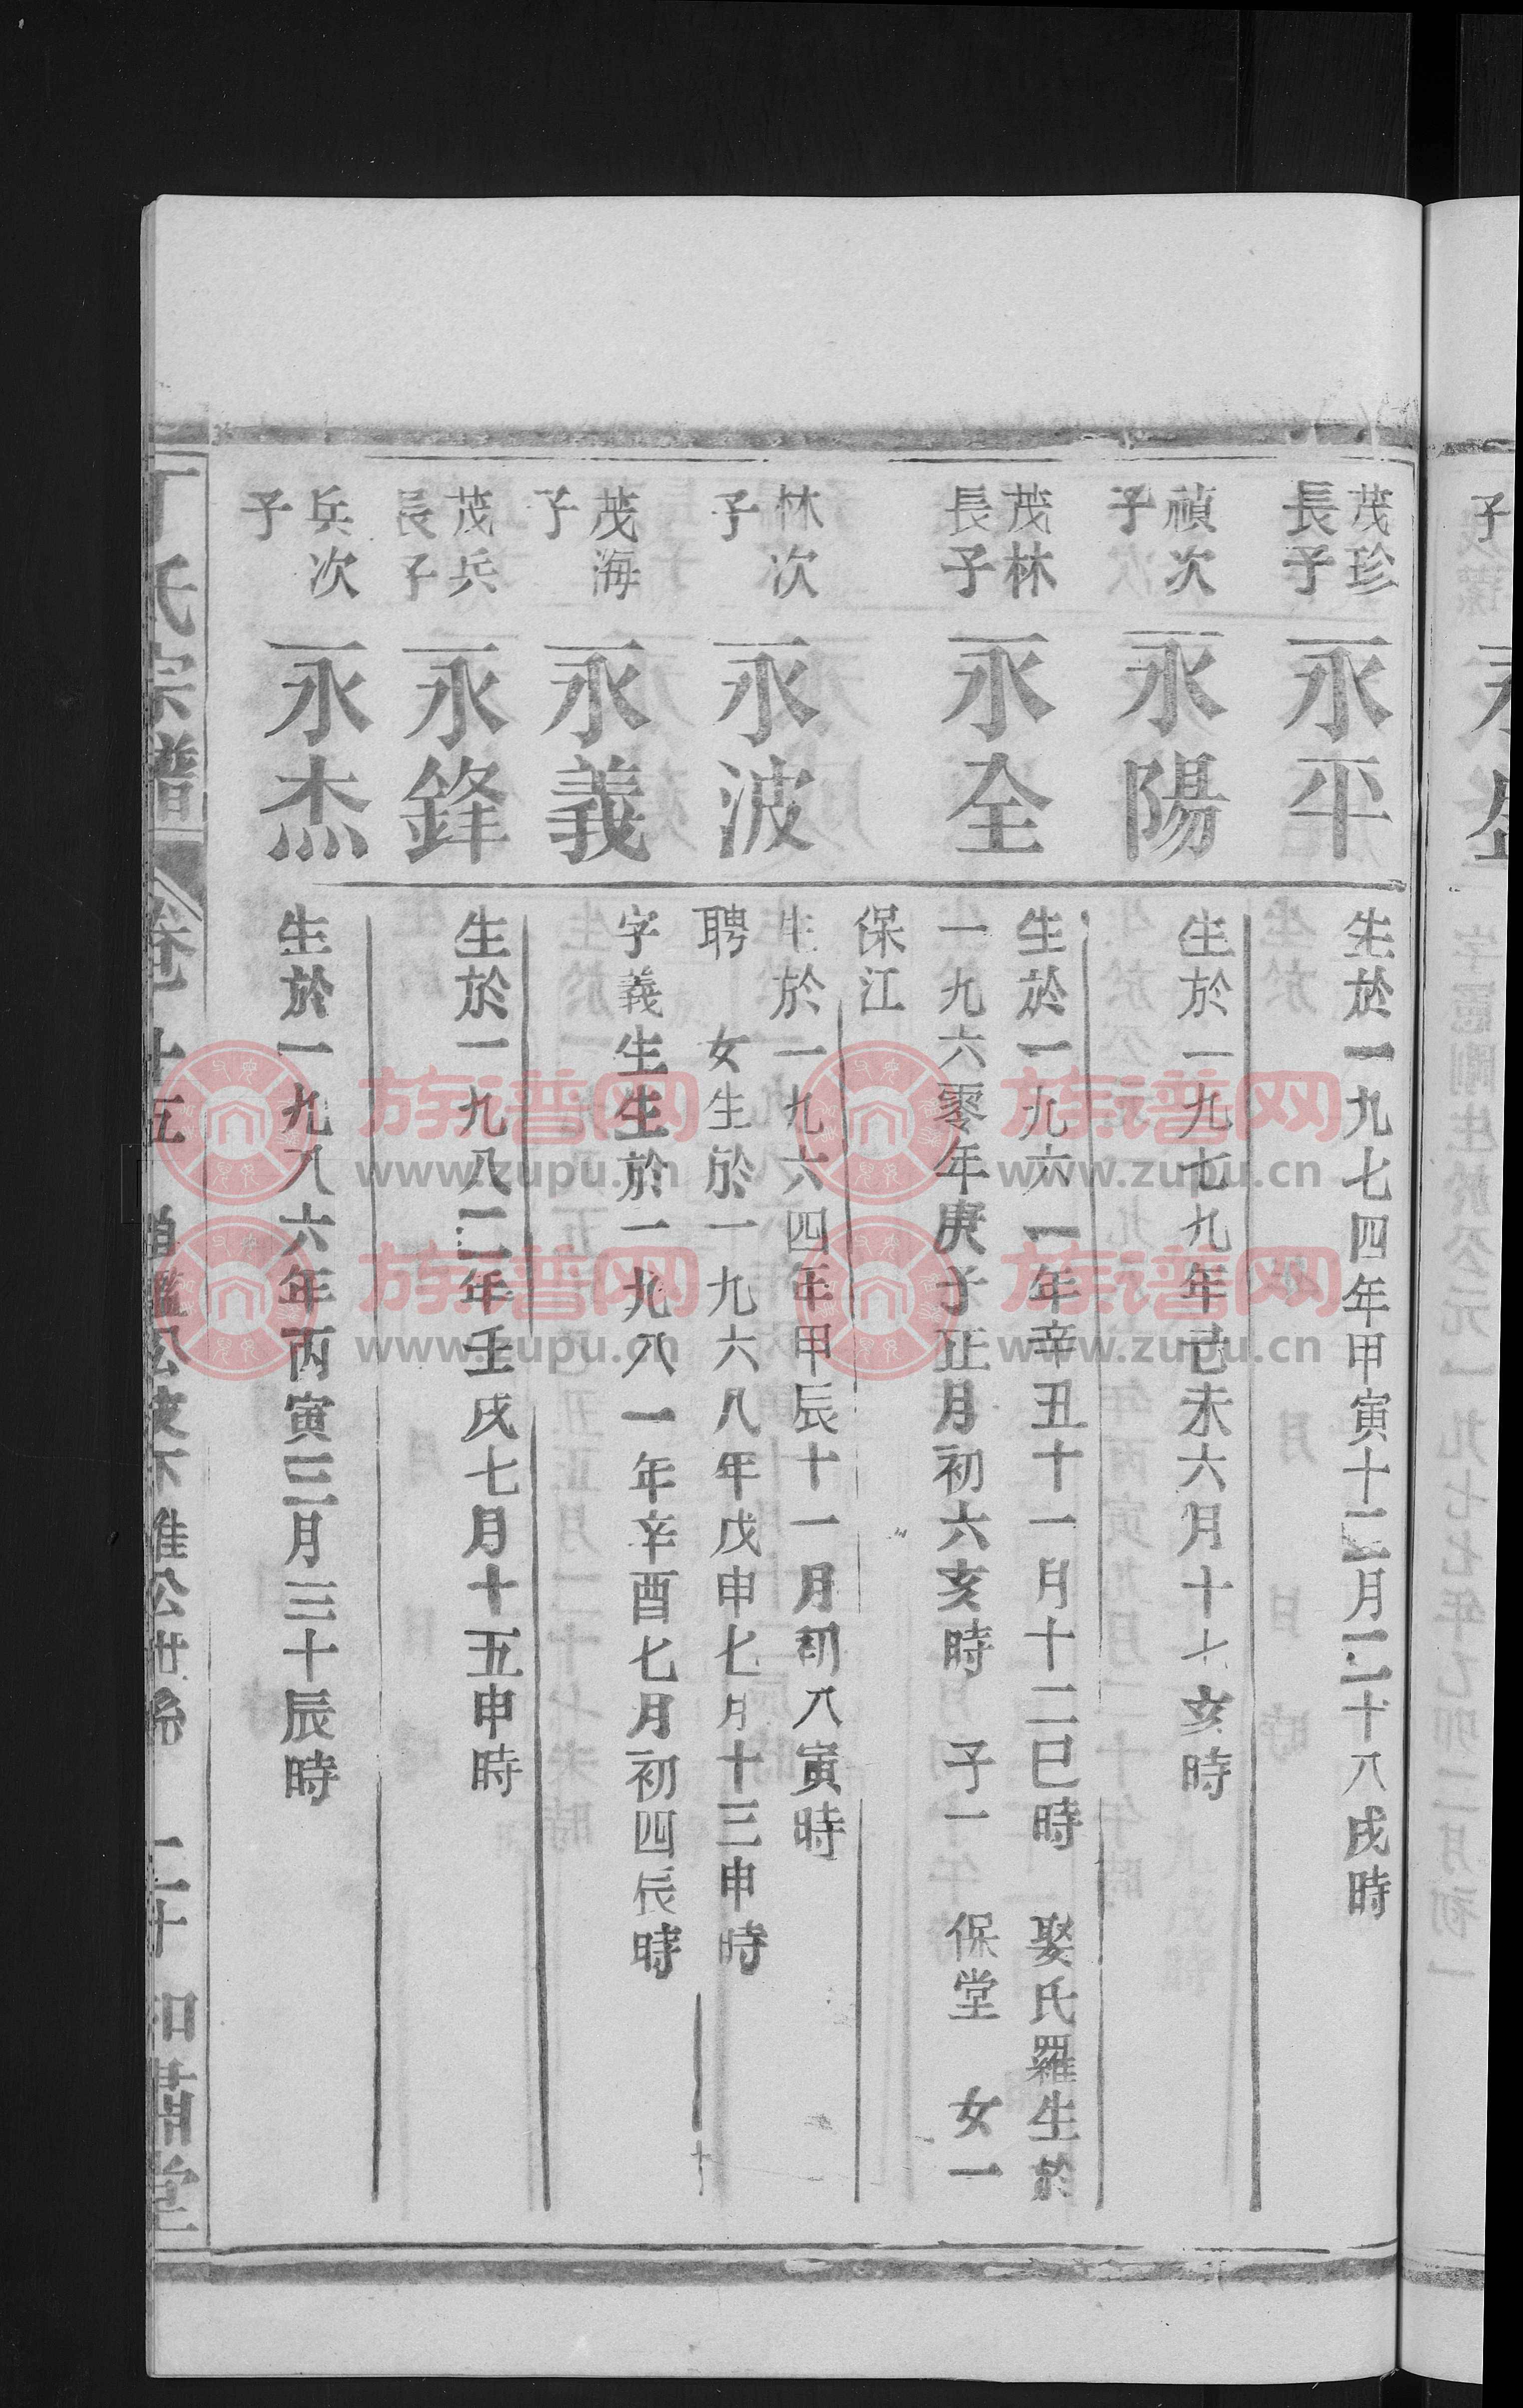 茂珍
長子
永平
生於一九七四年甲寅十二月二十八戌時
禎次
子
永陽
生於一九七九年己未六月十七亥時
茂林
長子
永全
生於一九六一年辛丑十一月十二巳時 娶氏羅生於
一九六零年庚子正月初六亥時 子一 保堂 女一
保江
林次
子
永波
生於一九六四年甲辰十一月初八寅時
聘 女生於一九六八年戊申七月十三申時
茂海
子
永義
字義生生於一九八一年辛酉七月初四辰時
茂兵
長子
永鋒
生於一九八二年壬戌七月十五申時
兵次
子
永杰
生於一九八六年丙寅三月三十辰時
丁氏宗譜
二十
族谱网
www.zupu.cn
族谱网
www.zupu.cn
族谱网
www.zupu.cn
族谱网
www.zupu.cn